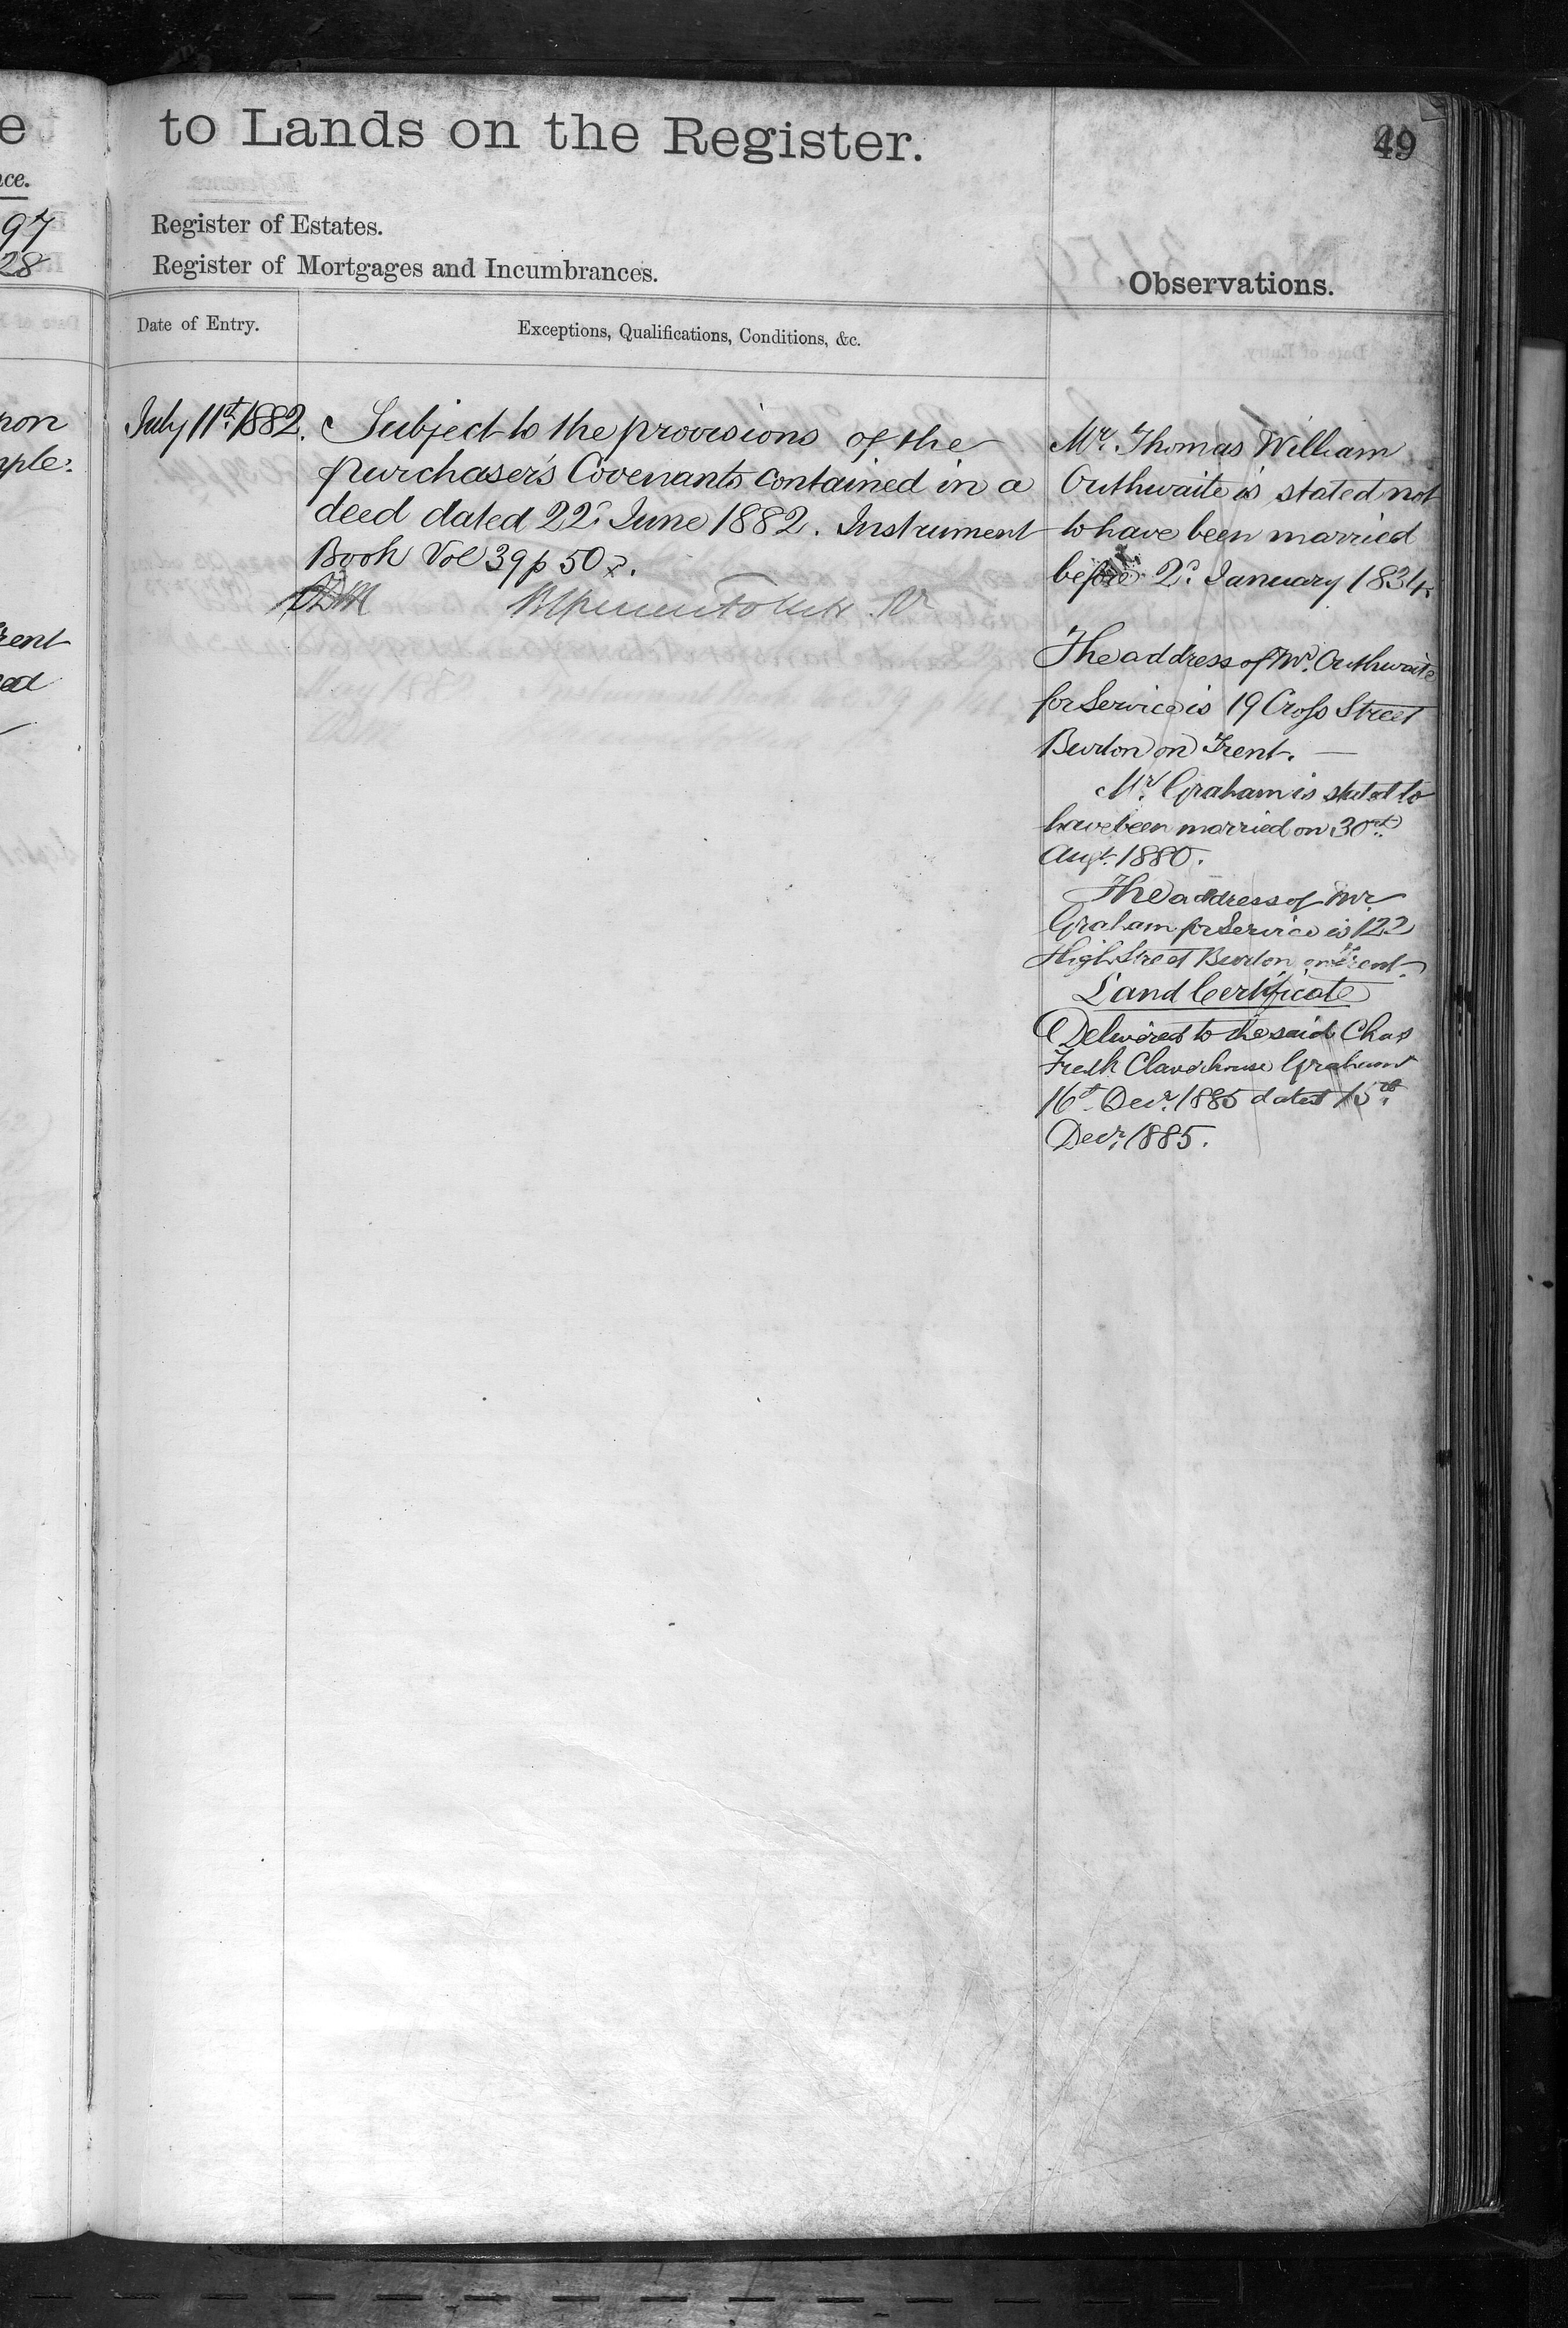 e
ce.
97
28
non
ple:
rent
ed
to Lands on the Register.
49
Register of Estates.
Register of Mortgages and Incumbrances.
Observations.
Date of Entry.
Exceptions, Qualifications, Conditions, &c.
July 11th 1882.
Subject to the provisions of the
purchaser's Covenants contained in a
deed dated 22d June 1882. Instrument
Book Vol 39 p 50
Mr. Thomas William
Outhwaite is stated not
to have been married
before 2d January 1834
The address of Mr. Outhwaite
for Service is 19 Cross Street
Burton on Trent. —
Mr. Graham is stated to
have been married on 30th
Augt. 1880.
The address of Mr
Graham for Service is 122
High Street Burton on Trent.
Land Certificate
Delivered to the said Chas
Fredk Claverhouse Graham
16th Decr. 1885 dated 15th
Decr. 1885.